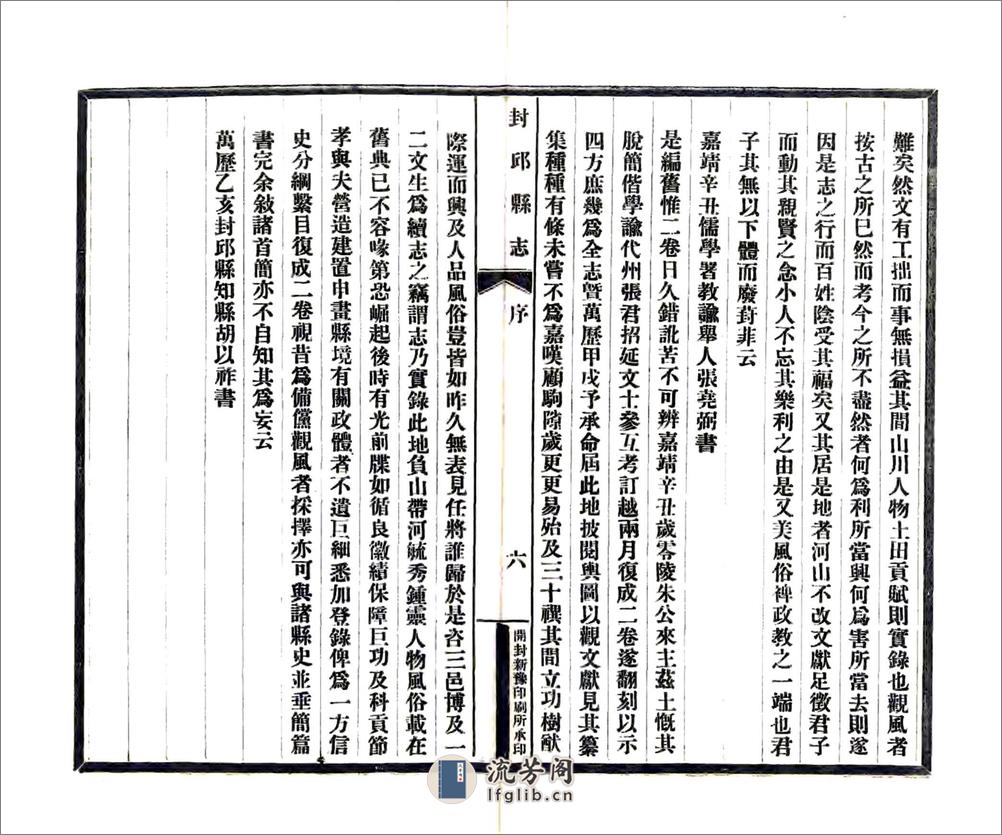 難矣然文有工拙而事無損益其間山川人物土田貢賦則實錄也觀風者
按古之所巳然而考今之所不盡然者何爲利所當興何爲害所當去則遂
因是志之行而百姓陰受其福矣又其居是地者河山不改文獻足徵君子
而動其親賢之念小人不忘其樂利之由是又美風俗裨政教之一端也君
子其無以下體而廢葑菲云
嘉靖辛丑儒學署教諭舉人張堯弼書
是編舊惟二卷日久錯訛苦不可辨嘉靖辛丑歲零陵朱公來主茲土慨其
脫簡偕學諭代州張君招延文士參互考訂越兩月復成二卷遂翻刻以示
四方庶幾爲全志暨萬歷甲戌予承命屆此地披閱輿圖以觀文獻見其纂
集種種有條未嘗不爲嘉嘆顧駒隙歲更更易殆及三十禩其間立功樹猷
封邱縣志
序
六
開封新豫印刷所承印
際運而興及人品風俗豈皆如昨久無表見任將誰歸於是咨三邑博及一
二文生爲續志之竊謂志乃實錄此地負山帶河毓秀鍾靈人物風俗載在
舊典已不容喙第恐崛起後時有光前牒如循良徽績保障巨功及科貢節
孝與夫營造建置申畫縣境有關政體者不遺巨細悉加登錄俾爲一方信
史分綱繫目復成二卷視昔爲備儻觀風者採擇亦可與諸縣史並垂簡篇
書完余敍諸首簡亦不自知其爲妄云
萬歷乙亥封邱縣知縣胡以祚書
流芳阁
lfglib.cn